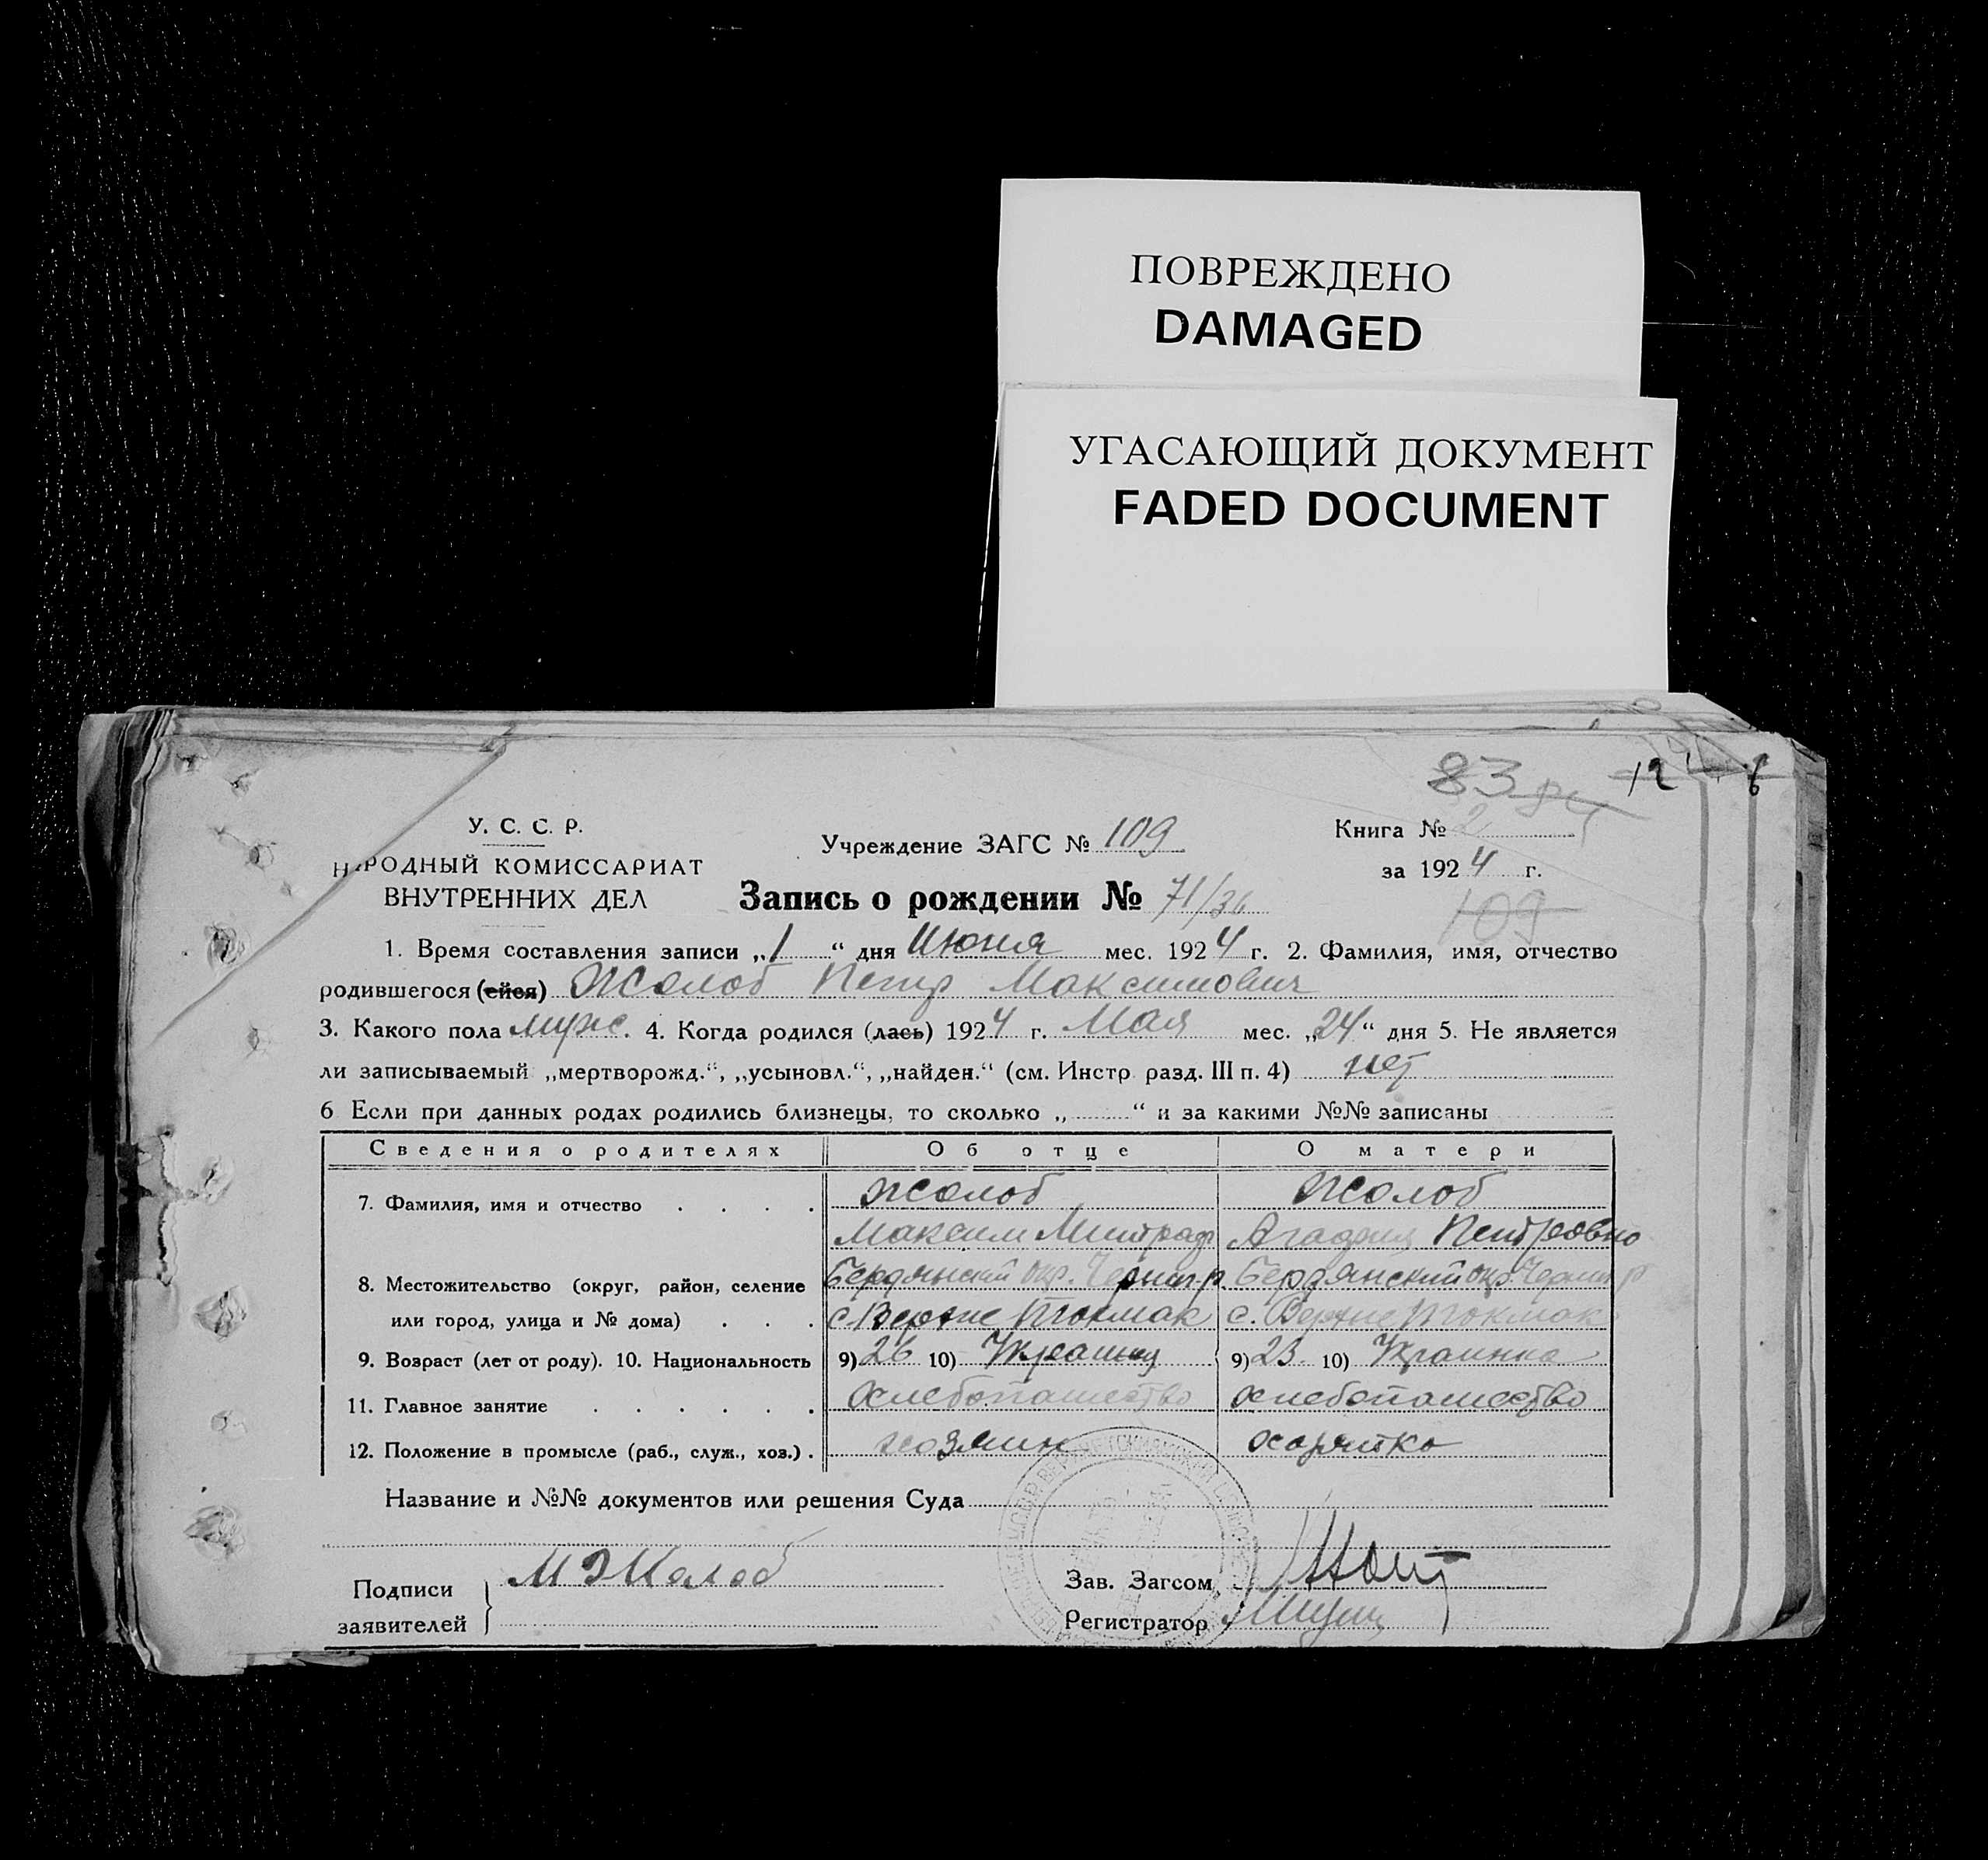 ПОВРЕЖДЕНО
DAMAGED
УГАСАЮЩИЙ ДОКУМЕНТ
FADED DOCUMENT
83
12 6
У. С. С. Р.
НАРОДНЫЙ КОМИССАРИАТ
ВНУТРЕННИХ ДЕЛ
Учреждение ЗАГС № 109
Книга № 2
за 1924 г.
109
Запись о рождении № 71/36
1. Время составления записи „1“ дня Июня мес. 1924 г. 2. Фамилия, имя, отчество
родившегося (ейся) Жолоб Петр Максимович
3. Какого пола муж. 4. Когда родился (лась) 1924 г. Мая мес. „24“ дня 5. Не является
ли записываемый „мертворожд.“, „усыновл.“, „найден.“ (см. Инстр разд. III п. 4) нет
6 Если при данных родах родились близнецы, то сколько „ “ и за какими №№ записаны
Сведения о родителях Об отце О матери
7. Фамилия, имя и отчество Жолоб Жолоб
Максим Митроф Агафия Петровно
8. Местожительство (округ, район, селение Бердянский окр. Черниг. р Бердянский окр. Черниг р
или город, улица и № дома) с. Верхне Токмак с. Верхне Токмак
9. Возраст (лет от роду). 10. Национальность 9) 26 10) Украинц 9) 23 10) Украинка
11. Главное занятие Хлебопашество хлебопашество
12. Положение в промысле (раб., служ., хоз.) хозяин
Название и №№ документов или решения Суда
Подписи
заявителей
М Жолоб
Зав. Загсом
Регистратор